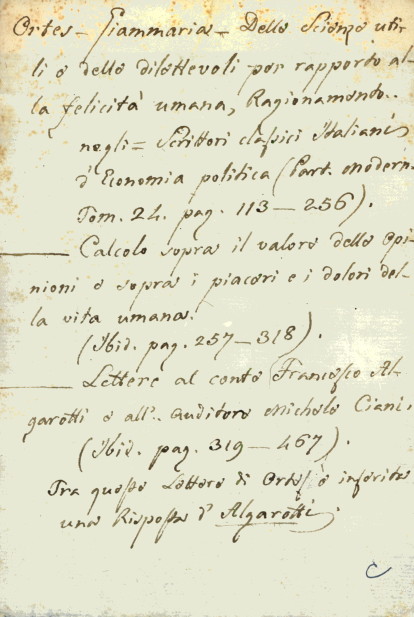 Ortes - Giammaria - Delle Scienze uti-
li e delle dilettevoli per rapporto al-
la felicità umana, Ragionamento..
negli = Scrittori classici Italiani
d'Economia politica (Part. Modern.
Tom. 24. pag. 113 — 256).
——— Calcolo sopra il valore delle opi-
nioni e sopra i piaceri e i dolori del-
la vita umana.
(Ibid. pag. 257 — 318).
——— Lettere al conte Francesco Al-
garotti e all'. Auditore Michele Ciani.
(Ibid. pag. 319 — 467).
Tra queste Lettere di Ortes è inserita
una Risposta d'Algarotti.
C